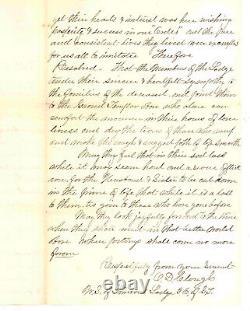 yet their hearts & interest was ever wishing
prosperity & success in our Order and the pure
and consistent lives they lived were examples
for us all to imitate Therefore
Resolved. That the Members of the Lodge
tender their sincere & heartfelt sympathy to
the families of the deceased and point them
to the Second Comforter Who alone can
comfort the mourner in their hours of lone
liness and dry the tears of them who weep
and make the rough & rugged path of life smooth
May they feel that in their sad loss
while it may seem hard and a severe affliction
for the Husband & Sister to be cut down
in the prime of life, that while it is a loss
to them, tis gain to those who have gone before
May they look joyfully forward to the time
when they shall meet in that better world
above Where partings shall come no more
forever
Respectfully from Your Servant
Lodge